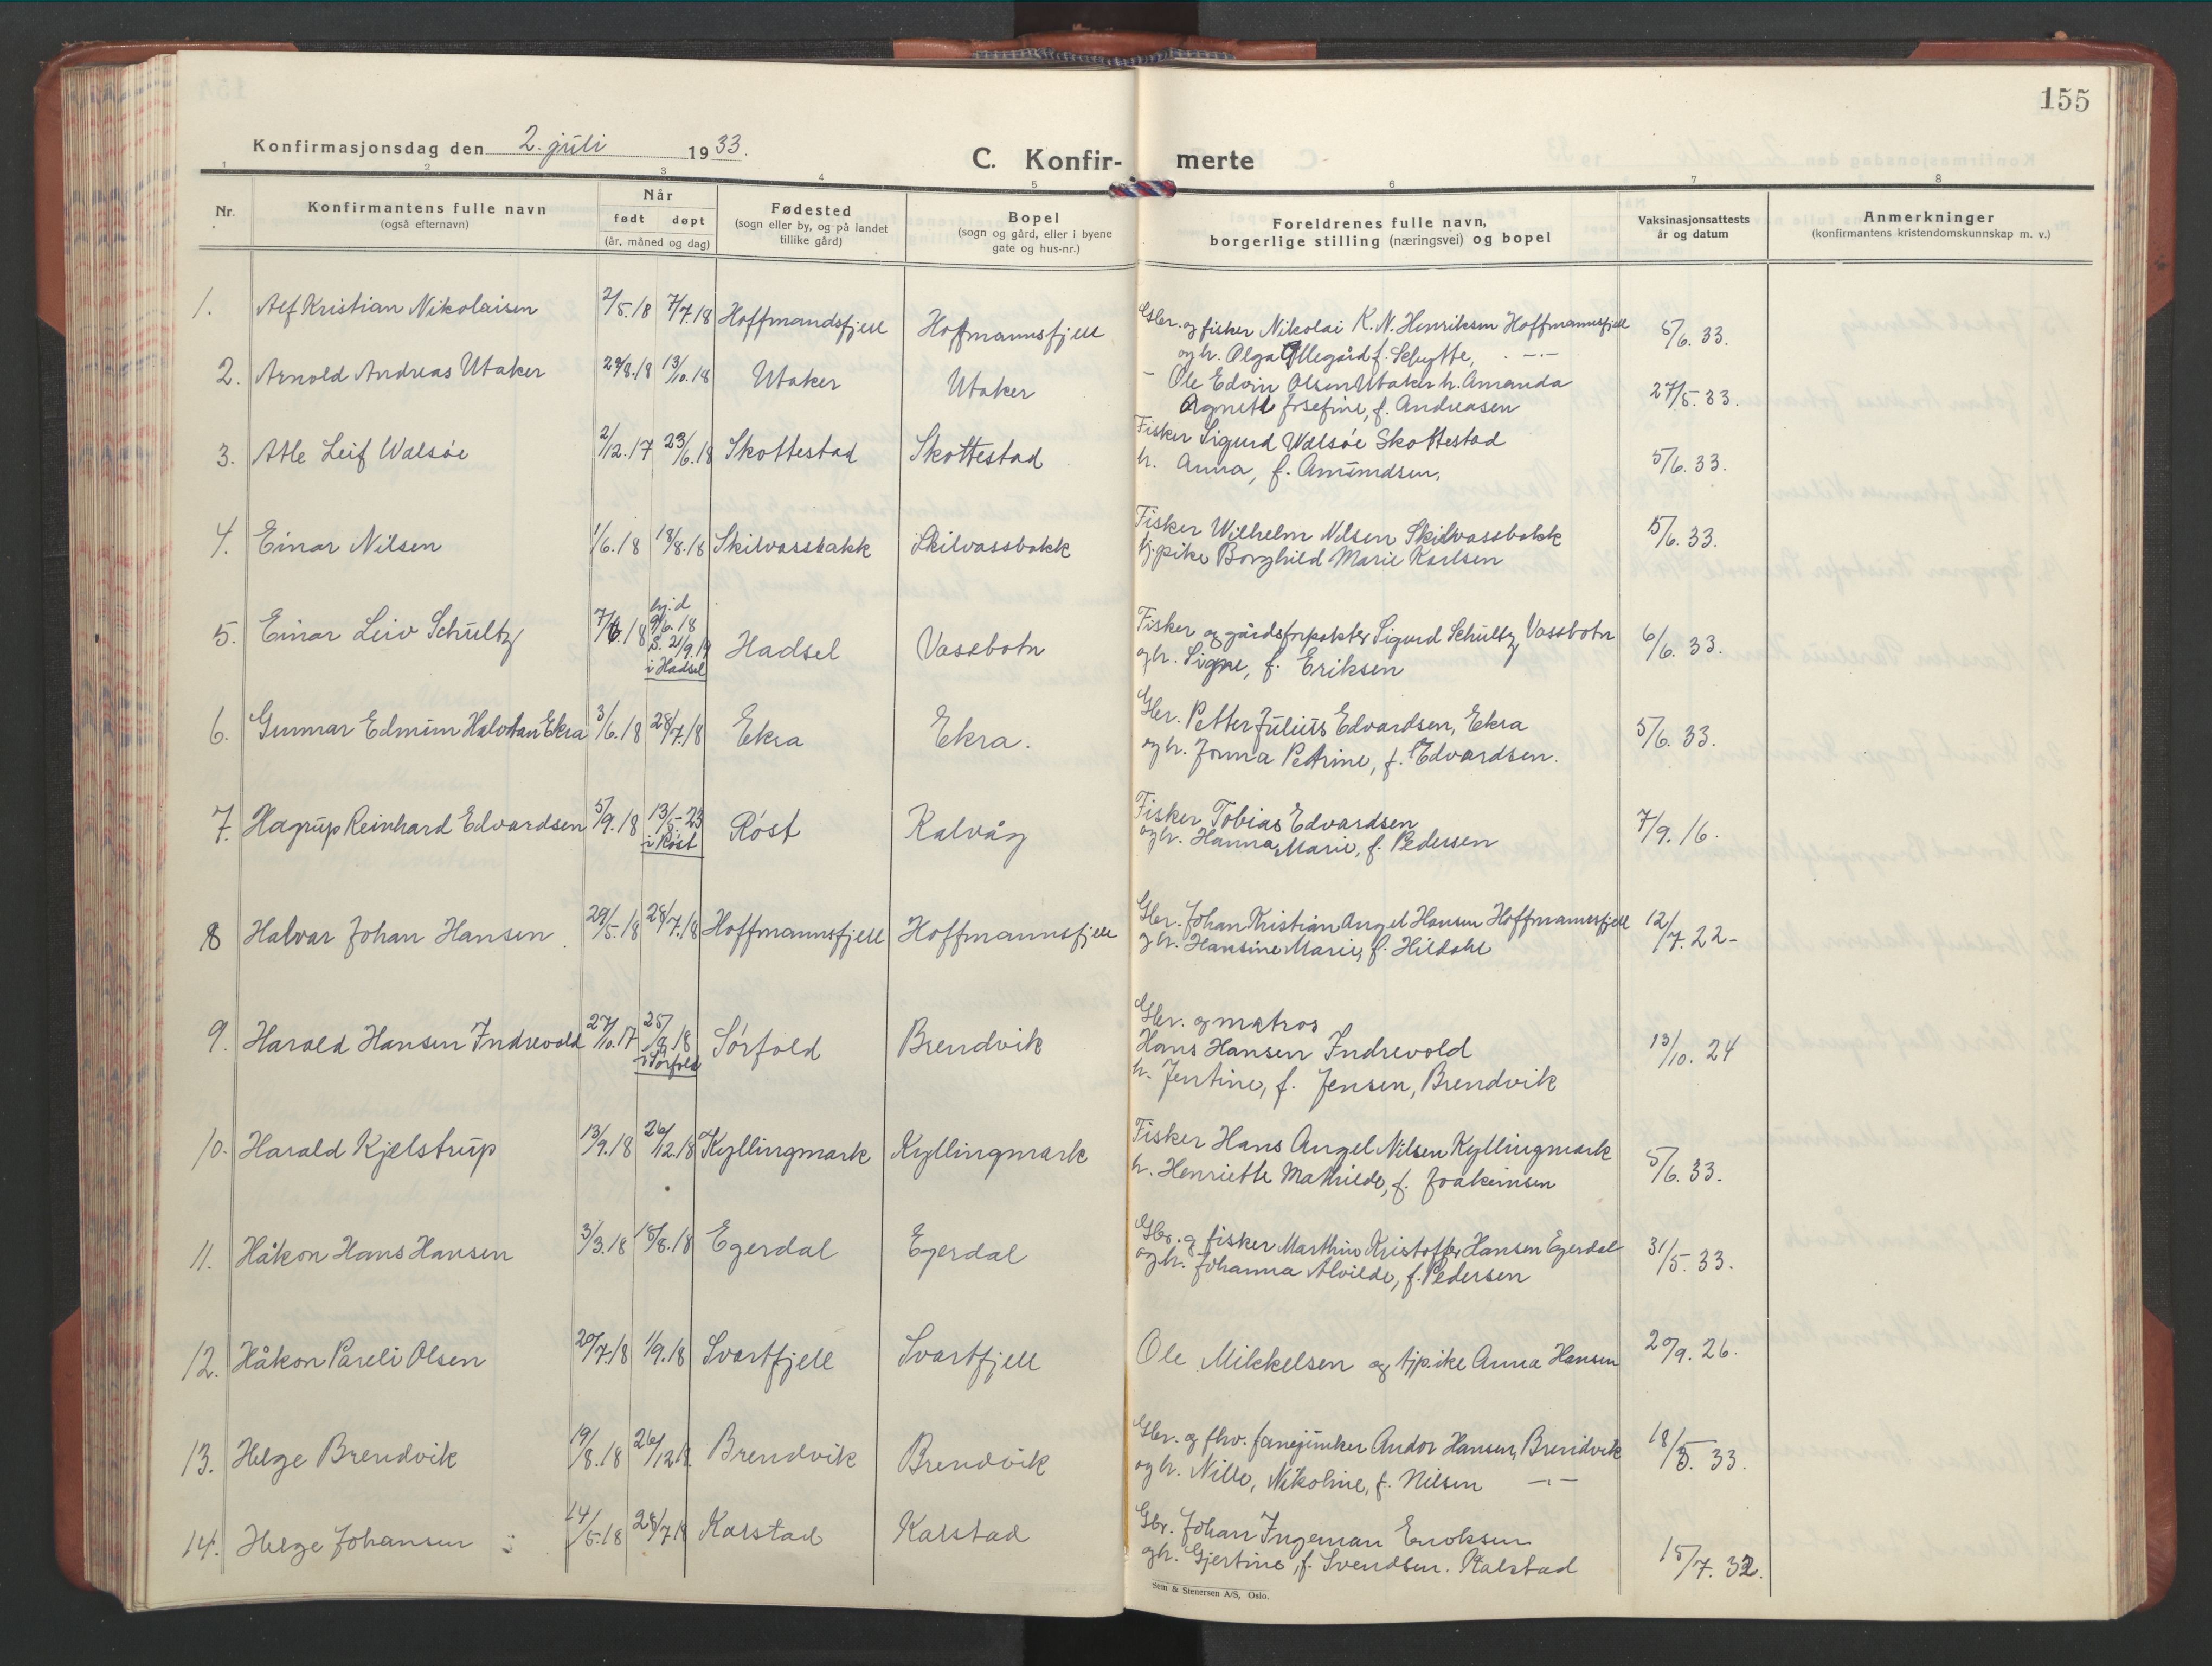 155
Konfirmasjonsdag den 2. juli 1933.
C. Konfir- merte
1 2 3 4 5 6 7 8
Nr.
Konfirmantens fulle navn
(også efternavn)
Når
født døpt
(år, måned og dag)
Fødested
(sogn eller by, og på landet
tillike gård)
Bopel
(sogn og gård, eller i byene
gate og hus-nr.)
Foreldrenes fulle navn,
borgerlige stilling (næringsvei) og bopel
Vaksinasjonsattests
år og datum
Anmerkninger
(konfirmantens kristendomskunnskap m. v.)
1. Alf Kristian Nikolaisen 2/5.18 7/7.18 Hoffmandsfjell Hoffmannsfjell Gbr. og fisker Nikolai K. N. Henriksen Hoffmannsfjell 5/6. 33.
og h. Olga Ellegård f. Schytte, . -.-
2. Arnold Andreas Utaker 29/8.18 13/10.18 Utaker Utaker - Ole Edvin Olsen Utaker h. Amanda 27/5. 33.
Agnete Josefine, f. Andreasen
3. Atle Leif Walsøe 2/12.17 23/6.18 Skottestad Skottestad Fisker Sigurd Walsøe Skottestad 5/6. 33.
h. Anna, f. Amundsen,
4. Einar Nilsen 1/6.18 18/8.18 Skilvassbakk Skilvassbakk Fisker Wilhelm Nilsen Skilvassbakk 5/6. 33.
tj.pike Borghild Marie Karlsen
5. Einar Leiv Schultz 7/6.18 hj.d 9/6.18 S. 21/9.19 i Hadsel Hadsel Vassbotn Fisker og gårdsforpakter Sigurd Schultz Vassbotn 6/6. 33.
og h. Signe, f. Eriksen
6. Gunnar Edmun Halvdan Ekra 3/6.18 28/7.18 Ekra Ekra. Gbr. Petter Julius Edvardsen, Ekra 5/6. 33.
og h. Jonna Petrine, f. Edvardsen.
7. Hagrup Reinhard Edvardsen 5/9.18 13/5-23 i Røst Røst Kalvåg Fisker Tobias Edvardsen 7/9. 16.
og h. Hanna Marie, f. Pedersen
8 Halvar Johan Hansen 29/5.18 28/7.18 Hoffmannsfjell Hoffmannsfjell Gbr. Johan Kristian Angel Hansen Hoffmannsfjell 12/7. 22-
og h. Hansine Marie, f. Hildahl
9. Harald Hansen Indrevold 27/10.17 25/8.18 i Sørfold Sørfold Brendvik Gbr. og matros
Hans Hansen Indrevold 13/10. 24
h. Jentine, f. Jensen, Brendvik
10. Harald Kjelstrup 13/9.18 26/12.18 Kyllingmark Kyllingmark Fisker Hans Angel Nilsen Kyllingmark 5/6. 33.
h. Henriette Mathilde, f. Joakimsen
11. Håkon Hans Hansen 3/3.18 18/8.18 Egerdal Egerdal Gbr. og fisker Marthin Kristoffer Hansen Egerdal 31/5. 33.
og h. Johanna Alvilde, f. Pedersen
12. Håkon Pareli Olsen 20/7.18 1/9.18 Svartfjell Svartfjell Ole Mikkelsen og tjp.ike Anna Hansen 20/9. 26.
13. Helge Brendvik 19/8.18 26/12.18 Brendvik Brendvik Gbr. og fhv. fanejunker Andor Hansen, Brendvik 18/5. 33.
og h. Nille, Nikoline, f. Nilsen -.-
14. Helge Johansen 14/5.18 28/7.18 Karstad Karstad Gbr. Johan Ingeman Enoksen 15/7. 32.
og h. Gjertine, f. Svendsen. Kalstad
Sem & Stenersen A/S, Oslo.